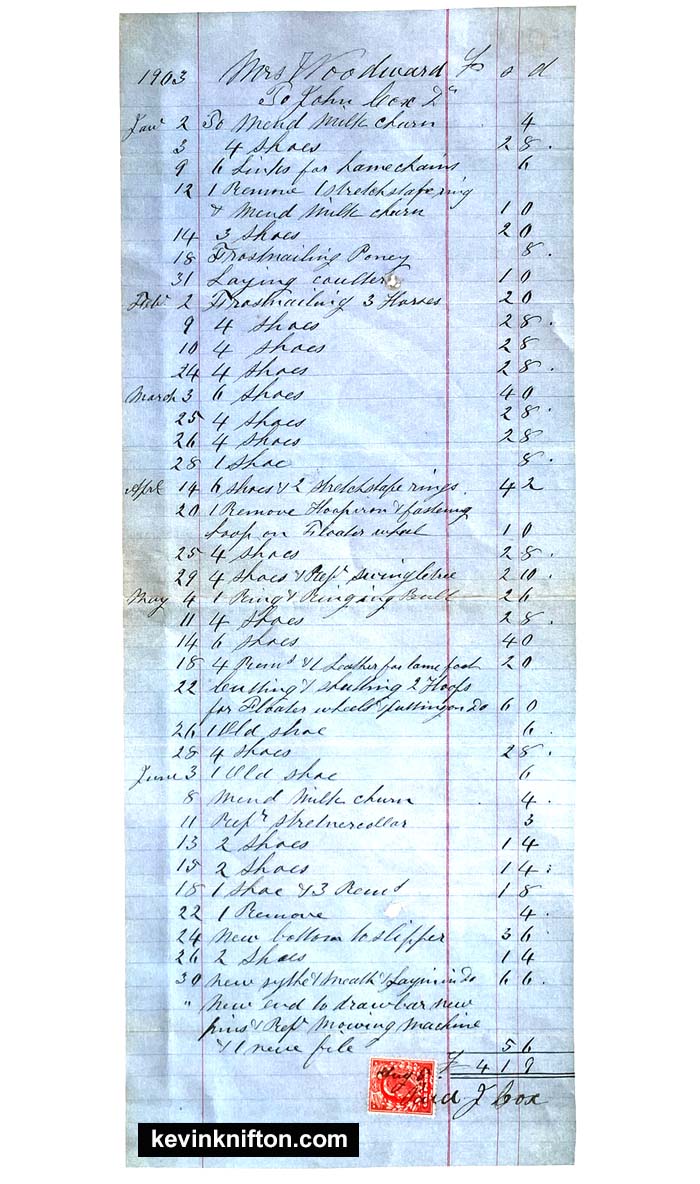 1903 Mrs Woodward £ s d
To John Cox Dr
Jany 2 To Mend Milk churn 4
3 4 Shoes 2 8
9 6 Links for hamechains 6
12 1 Remove 1 stretchstape ring
& Mend Milk churn 1 0
14 3 Shoes 2 0
18 Frostnailing Poney 8
31 Laying coulter 1 0
Feby 2 Frostnailing 3 Horses 2 0
9 4 Shoes 2 8
10 4 Shoes 2 8
24 4 Shoes 2 8
March 3 6 Shoes 4 0
25 4 Shoes 2 8
26 4 Shoes 2 8
28 1 Shoe 8
Aprl 14 6 Shoes & 2 stretchstape rings 4 2
20 1 Remove Hoopiron & fastening
hoop on Floater wheel 1 0
25 4 Shoes 2 8
29 4 Shoes & Repr swingletree 2 10
May 4 1 Ring & Ringing Bull 2 6
11 4 Shoes 2 8
14 6 Shoes 4 0
18 4 Remd & 1 Leather for lame foot 2 0
22 Cutting & shutting 2 Hoops
for Floater wheels & putting on do 6 0
26 1 Old shoe 6
28 4 Shoes 2 8
June 3 1 Old shoe 6
8 Mend Milk churn 4
11 Repr stretnercollar 3
13 2 Shoes 1 4
15 2 Shoes 1 4
18 1 Shoe & 3 Remd 1 8
22 1 Remove 4
24 New bottom to slipper 3 6
26 2 Shoes 1 4
30 New sythe & sneath & Laying in do 6 6
" New end to drawbar new
pins & Repr Mowing Machine
& 1 new file 5 6
£ 4 1 9
Paid J Cox
kevinknifton.com